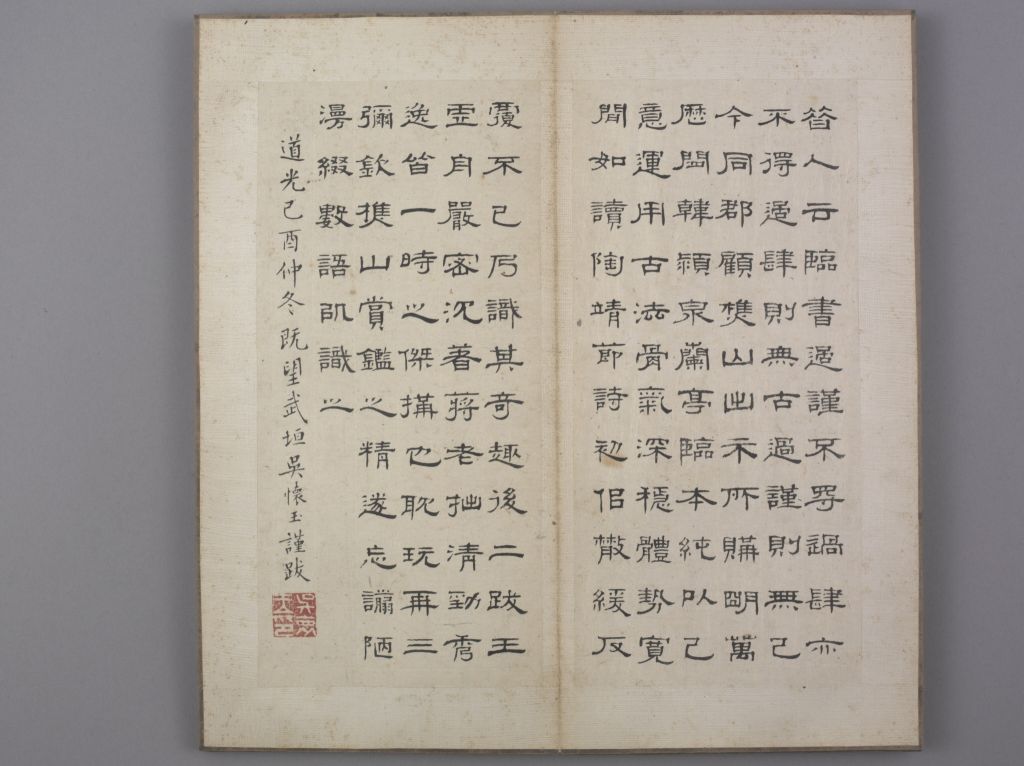 昔人云臨書過謹不㝵過肆亦
不得過肆則無古過謹則無己
今同郡顧樵山出示所購明萬
歷閩韓潁泉蘭亭臨本純以己
意運用古法骨氣深穩體勢寬
閒如讀陶靖節詩初侣散緩反
覆不已乃識其奇趣後二跋王
雲自嚴密沈著蔣老拙清勁秀
逸皆一時之傑搆也耽玩再三
彌欽樵山賞鑑之精遂忘譾陋
漫綴數語㕥識之
道光己酉仲冬既望武垣吳懷玉謹跋